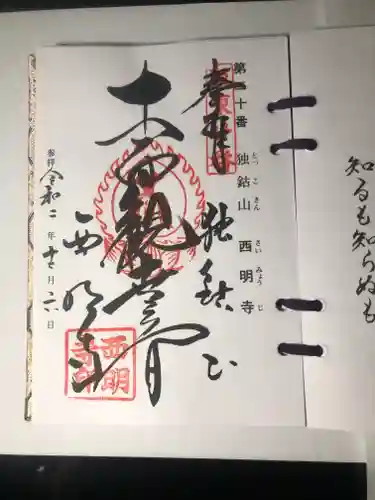 知るも知らぬも
第二十番 独鈷山 西明寺
とっこさん さいみょうじ
奉拝 独鈷山
十一面観世音
西明寺
西明寺印
参拝 令和二年十一月六日